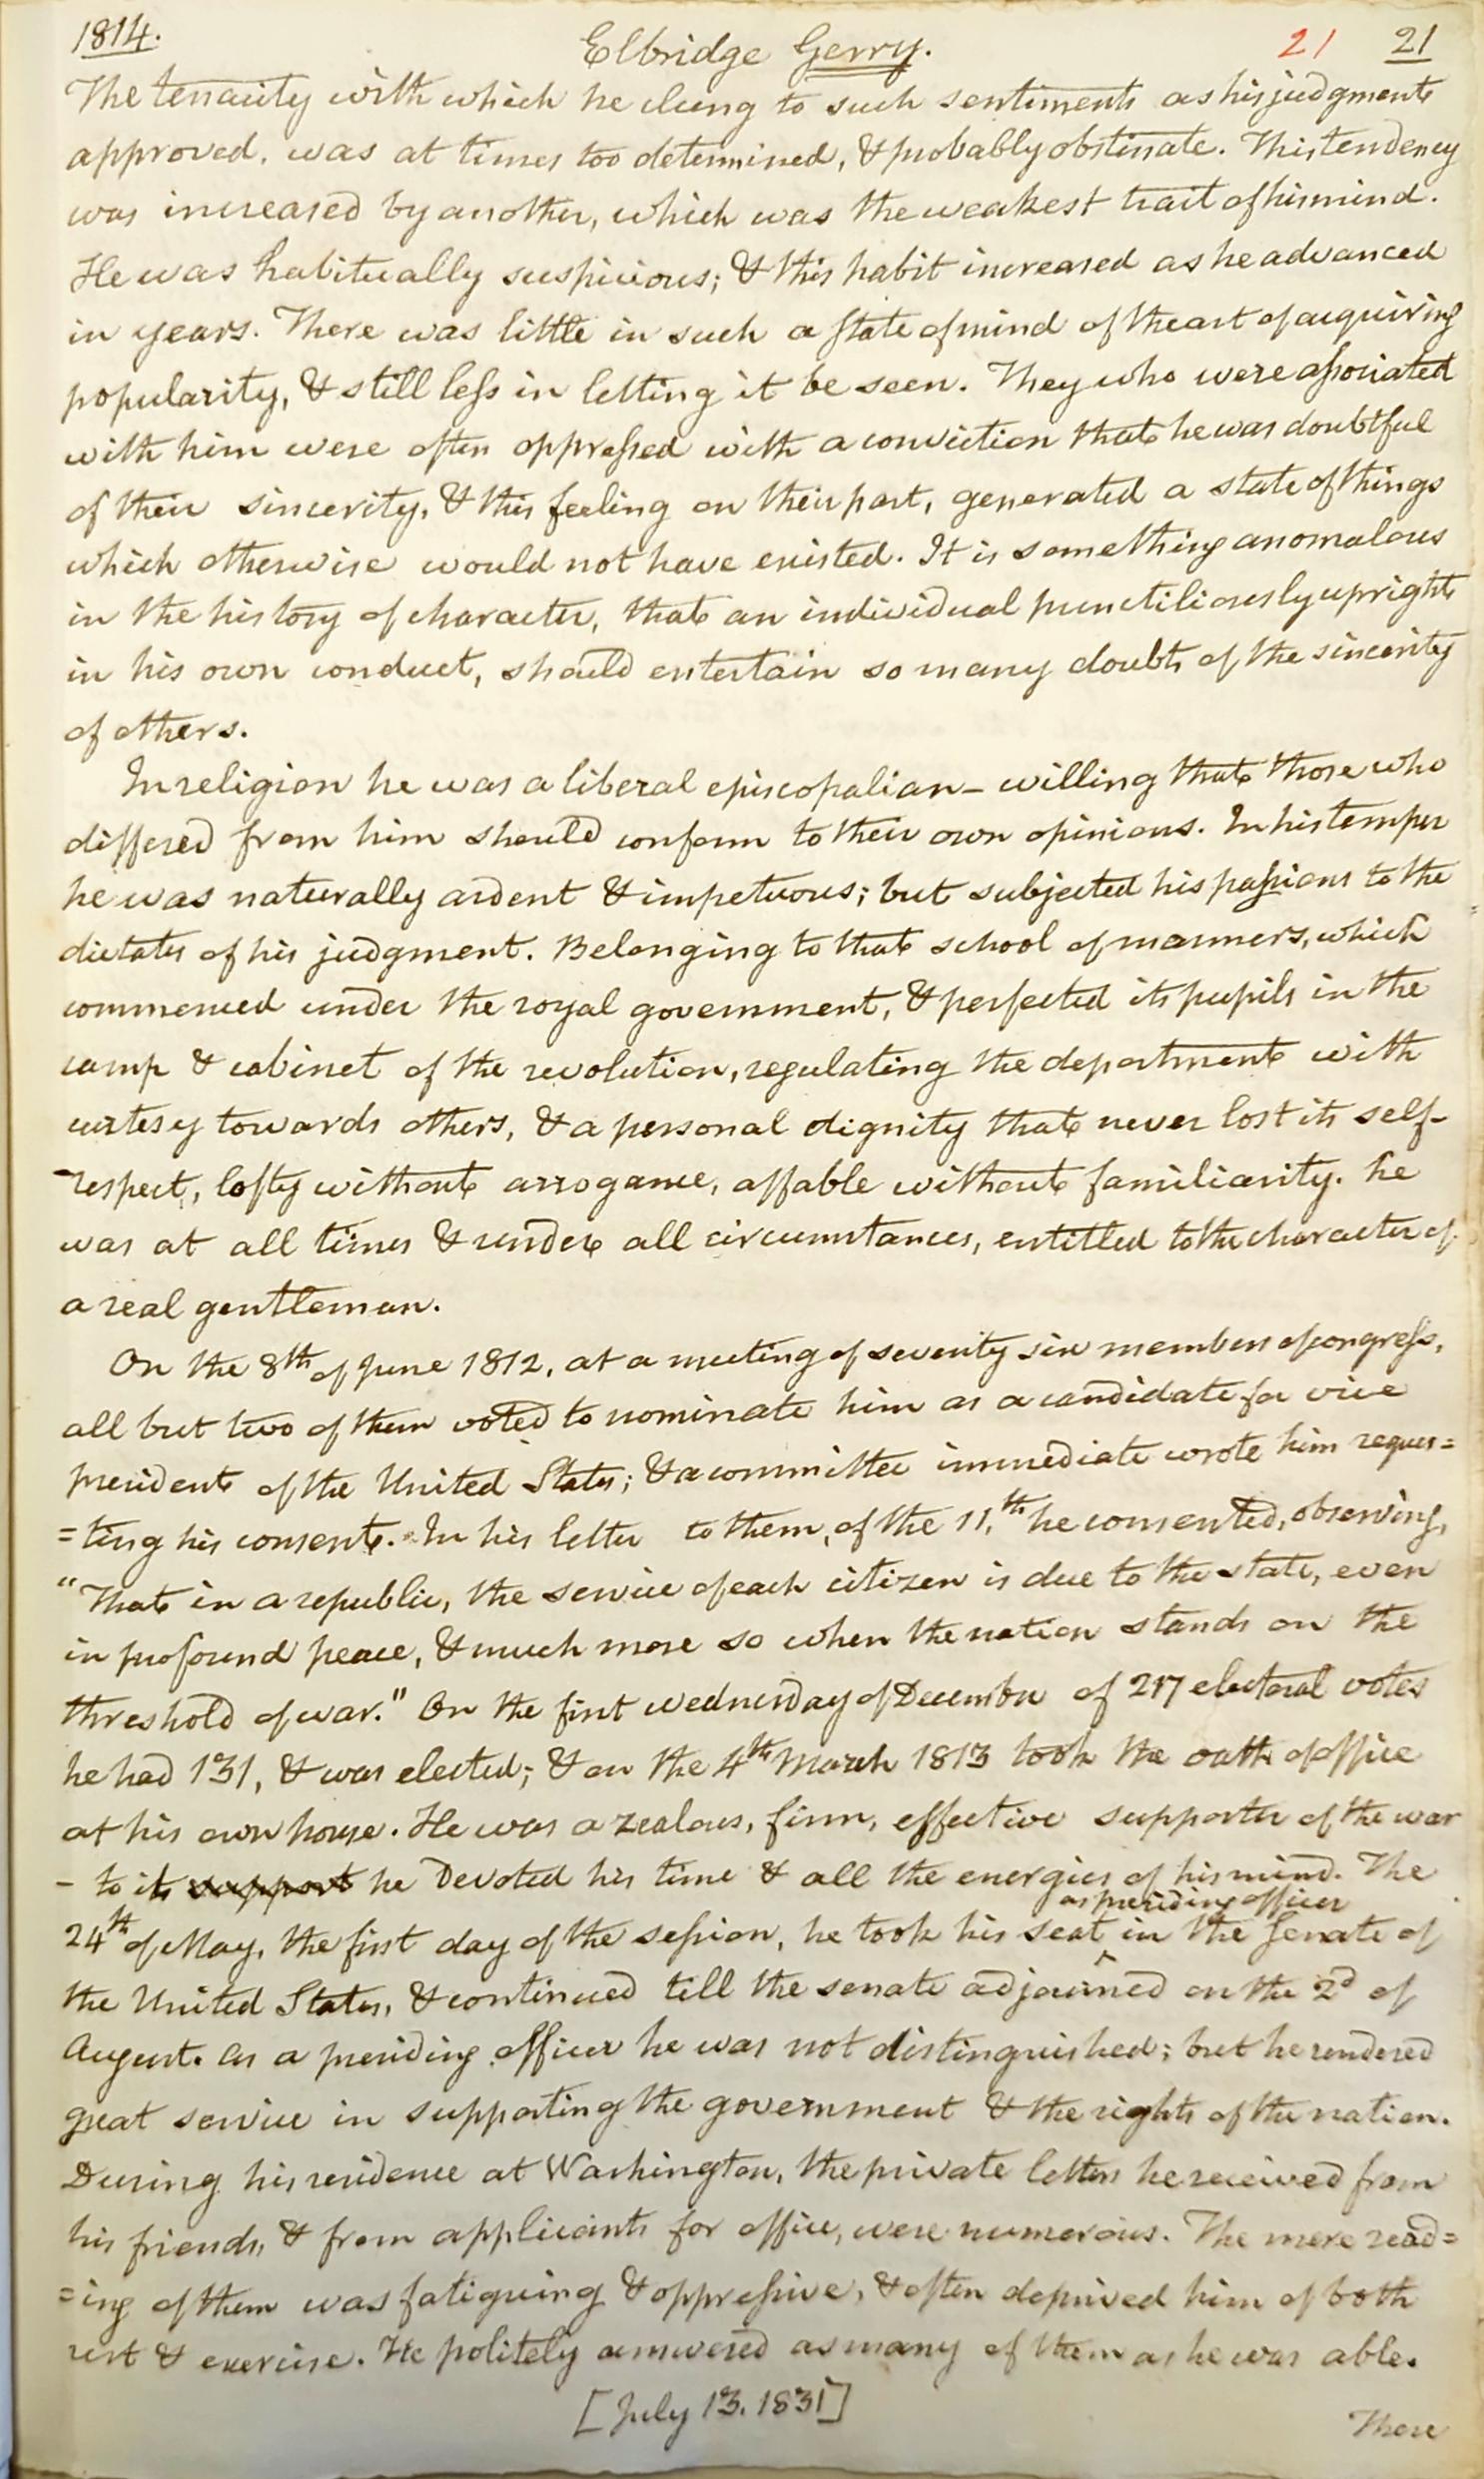 1814.
Elbridge Gerry.
21 21
The tenacity with which he clung to such sentiments as his judgment
approved, was at times too determined, & probably obstinate. This tendency
was increased by another, which was the weakest trait of his mind.
He was habitually suspicious; & this habit increased as he advanced
in years. There was little in such a state of mind of the art of acquiring
popularity, & still less in letting it be seen. They who were associated
with him were often oppressed with a conviction that he was doubtful
of their sincerity, & this feeling on their part, generated a state of things
which otherwise would not have existed. It is something anomalous
in the history of character, that an individual punctiliously upright
in his own conduct, should entertain so many doubts of the sincerity
of others.
In religion he was a liberal episcopalian – willing that those who
differed from him should conform to their own opinions. In his temper
he was naturally ardent & impetuous; but subjected his passions to the
dictates of his judgment. Belonging to that school of manners, which
commenced under the royal government, & perfected its pupils in the
camp & cabinet of the revolution, regulating the deportment with
curtesy towards others, & a personal dignity that never lost its self-
-respect, lofty without arrogance, affable without familiarity. he
was at all times & under all circumstances, entitled to the character of
a real gentleman.
On the 8th of June 1812, at a meeting of seventy six members of congress,
all but two of them voted to nominate him as a candidate for vice
president of the United States; & a committee immediate wrote him reques=
=ting his consent. In his letter to them, of the 11.th he consented, observing,
"That in a republic, the service of each citizen is due to the state, even
in profound peace, & much more so when the nation stands on the
threshold of war." On the first wednesday of December of 217 electoral votes
he had 131, & was elected; & on the 4th March 1813 took the oath of office
at his own house. He was a zealous, firm, effective supporter of the war
– to its support he devoted his time & all the energies of his mind. The
as presiding officer
24th of May, the first day of the session, he took his seat ^ in the senate of
the United States, & continued till the senate adjourned on the 2d of
August. As a presiding officer he was not distinguished; but he rendered
great service in supporting the government & the rights of the nation.
During his residence at Washington, the private letters he received from
his friends, & from applicants for office, were numerous. The mere read=
=ing of them was fatiguing & oppressive, & often deprived him of both
rest & exercise. He politely answered as many of them as he was able.
[July 13. 1831]
There